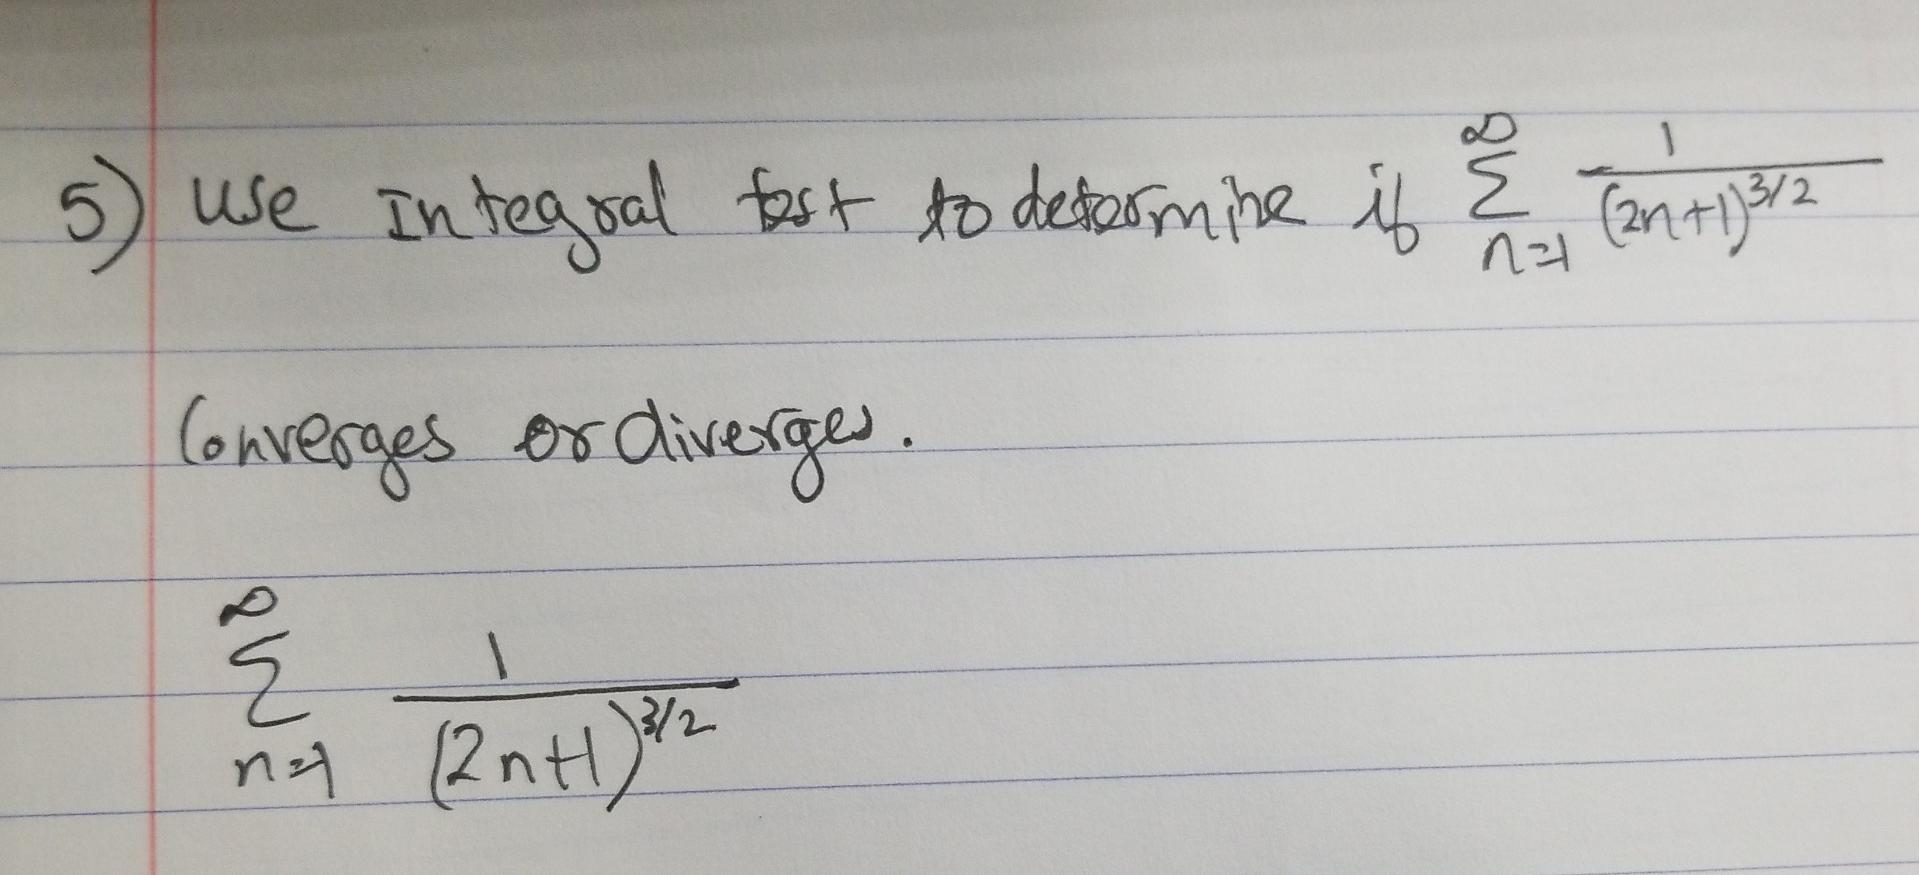 5) Use Integral test to determine if ∞ Σ n=1 1/(2n+1)^3/2
Converges or diverges.
∞ Σ n=1 1/(2n+1)^3/2